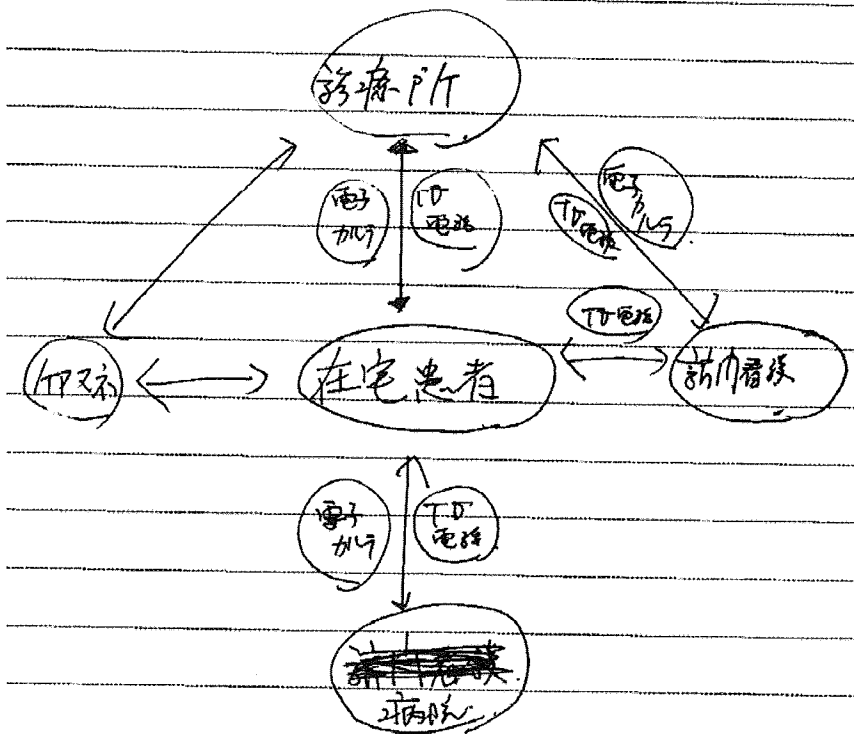 診療所
電子
カルテ
TV
電話
電子
カルテ
TV
電話
TV電話
ケアマネ
在宅患者
訪問看護
電子
カルテ
TV
電話
病院